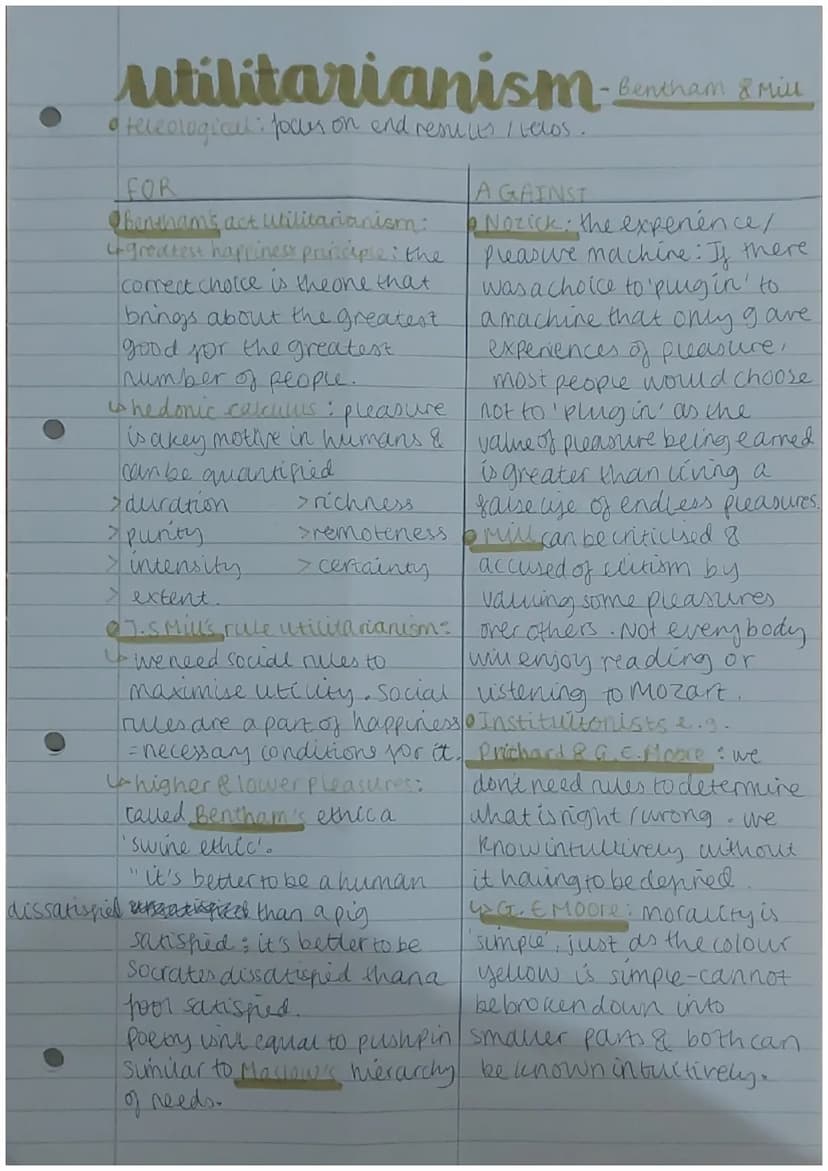 utilitarianism - Bentham & Mill
teleological: focus on end results / telos.
FOR
Bentham's act utilitarianism:
↳ greatest happiness principle: the
correct choice is the one that
brings about the greatest
good for the greatest
number of people.
↳ hedonic calculus: pleasure
is a key motive in humans &
can be quantified
> duration > richness
> purity > remoteness
> intensity > certainty
> extent.
J.S Mill's rule utilitarianism:
↳ we need social rules to
maximise utility. Social
rules are a part of happiness
= necessary conditions for it.
↳ higher & lower pleasures:
called Bentham's ethic a
'swine ethic'.
"it's better to be a human
dissatisfied than a pig
satisfied; it's better to be
Socrates dissatisfied than a
fool satisfied.
Poetry isnt equal to pushpin
similar to Maslow's hierarchy
of needs.
AGAINST
Nozick: the experience/
pleasure machine: If there
was a choice to 'plug in' to
a machine that only gave
experiences of pleasure,
most people would choose
not to 'plug in' as the
value of pleasure being earned
is greater than living a
false life of endless pleasures.
Mill can be criticised &
accused of elitism by
valuing some pleasures
over others. Not everybody
will enjoy reading or
listening to Mozart.
Instituitonists e.g.
Prichard & G.E. Moore: we
don't need rules to determine
what is right / wrong. we
know intuitively without
it having to be defined.
↳ G.E Moore: morality is
'simple', just as the colour
yellow is simple - cannot
be broken down into
smaller parts & both can
be known intuitively.